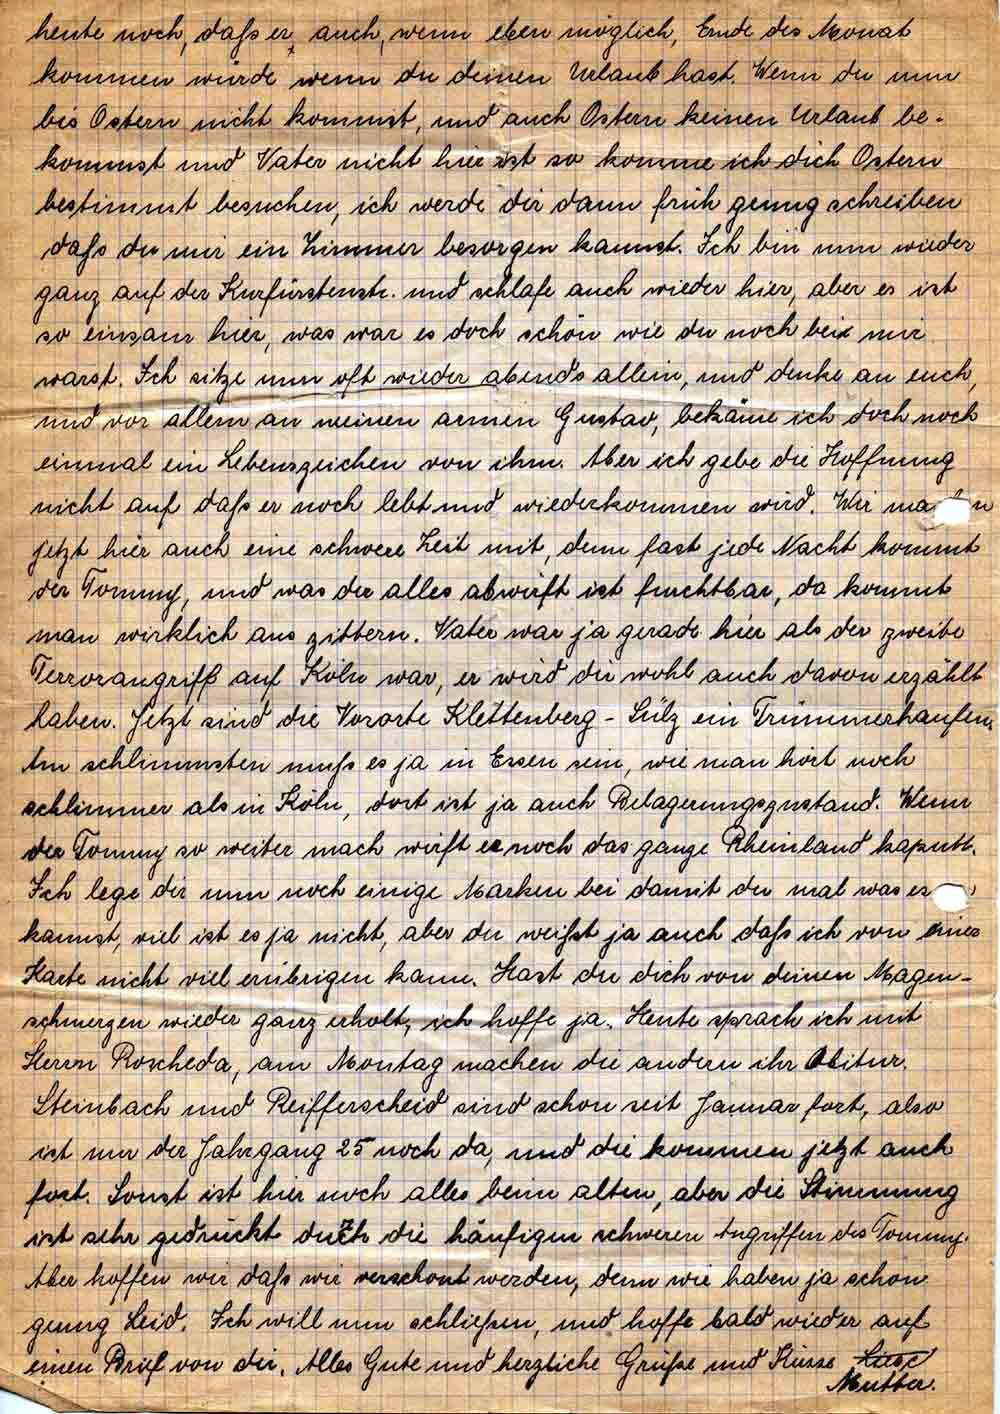 heute noch, daß er, auch, wenn eben möglich, Ende des Monat
kommen würde wenn du deinen Urlaub hast. Wenn du nun
bis Ostern nicht kommst, und auch Ostern keinen Urlaub be-
kommst und Vater nicht hier ist so komme ich dich Ostern
bestimmt besuchen, ich werde dir dann früh genug schreiben
daß du mir ein Zimmer besorgen kannst. Ich bin nun wieder
ganz auf der Kurfürstenstr. und schlafe auch wieder hier, aber es ist
so einsam hier, was war es doch schön wie du noch bei mir
warst. Ich sitze nun oft wieder abends allein, und denke an euch,
und vor allem an meinen armen Gustav, bekäme ich doch noch
einmal ein Lebenszeichen von ihm. Aber ich gebe die Hoffnung
nicht auf daß er noch lebt und wiederkommen wird. Wir ma n
jetzt hier auch eine schwere Zeit mit, denn fast jede Nacht kommt
der Tommy, und was der alles abwirft ist furchtbar, da kommt
man wirklich ans zittern. Vater war ja gerade hier als der zweite
Terrorangriff auf Köln war, er wird dir wohl auch davon erzählt
haben. Jetzt sind die Vororte Klettenberg - Sülz ein Trümmerhaufen.
Am schlimmsten muß es ja in Essen sein, wie man hört noch
schlimmer als in Köln, dort ist ja auch Belagerungszustand. Wenn
der Tommy so weiter mach wirft er noch das ganze Rheinland kaputt.
Ich lege dir nun noch einige Marken bei damit du mal was es
kannst, viel ist es ja nicht, aber du weißt ja auch daß ich von einer
Karte nicht viel erübrigen kann. Hast du dich von deinen Magen-
schmerzen wieder ganz erholt, ich hoffe ja. Heute sprach ich mit
Herrn Roscheda, am Montag machen die andern ihr Abitur.
Steinbach und Reifferscheid sind schon seit Januar fort, also
ist nur der Jahrgang 25 noch da, und die kommen jetzt auch
fort. Sonst ist hier noch alles beim alten, aber die Stimmung
ist sehr gedrückt durch die häufigen schweren Angriffen des Tommy.
Aber hoffen wir daß wir verschont werden, denn wir haben ja schon
genug Leid. Ich will nun schließen, und hoffe bald wieder auf
einen Brief von dir. Alles Gute und herzliche Grüße und Küsse
Mutter.